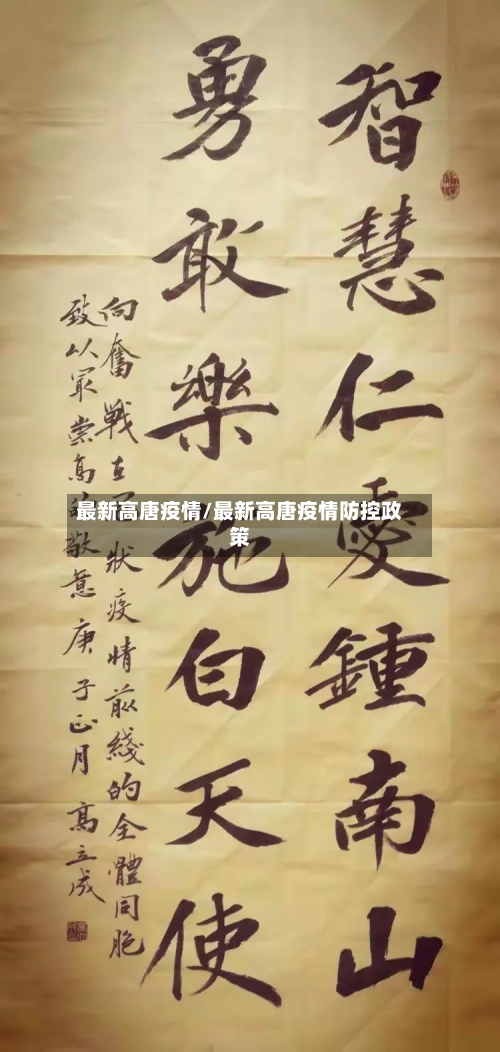 智慧仁愛鍾南山
勇敢樂施白天使
向奮戰在狀疫情前綫的全體同胞
致以最崇高的敬意庚子正月高立成
最新高唐疫情/最新高唐疫情防控政
策